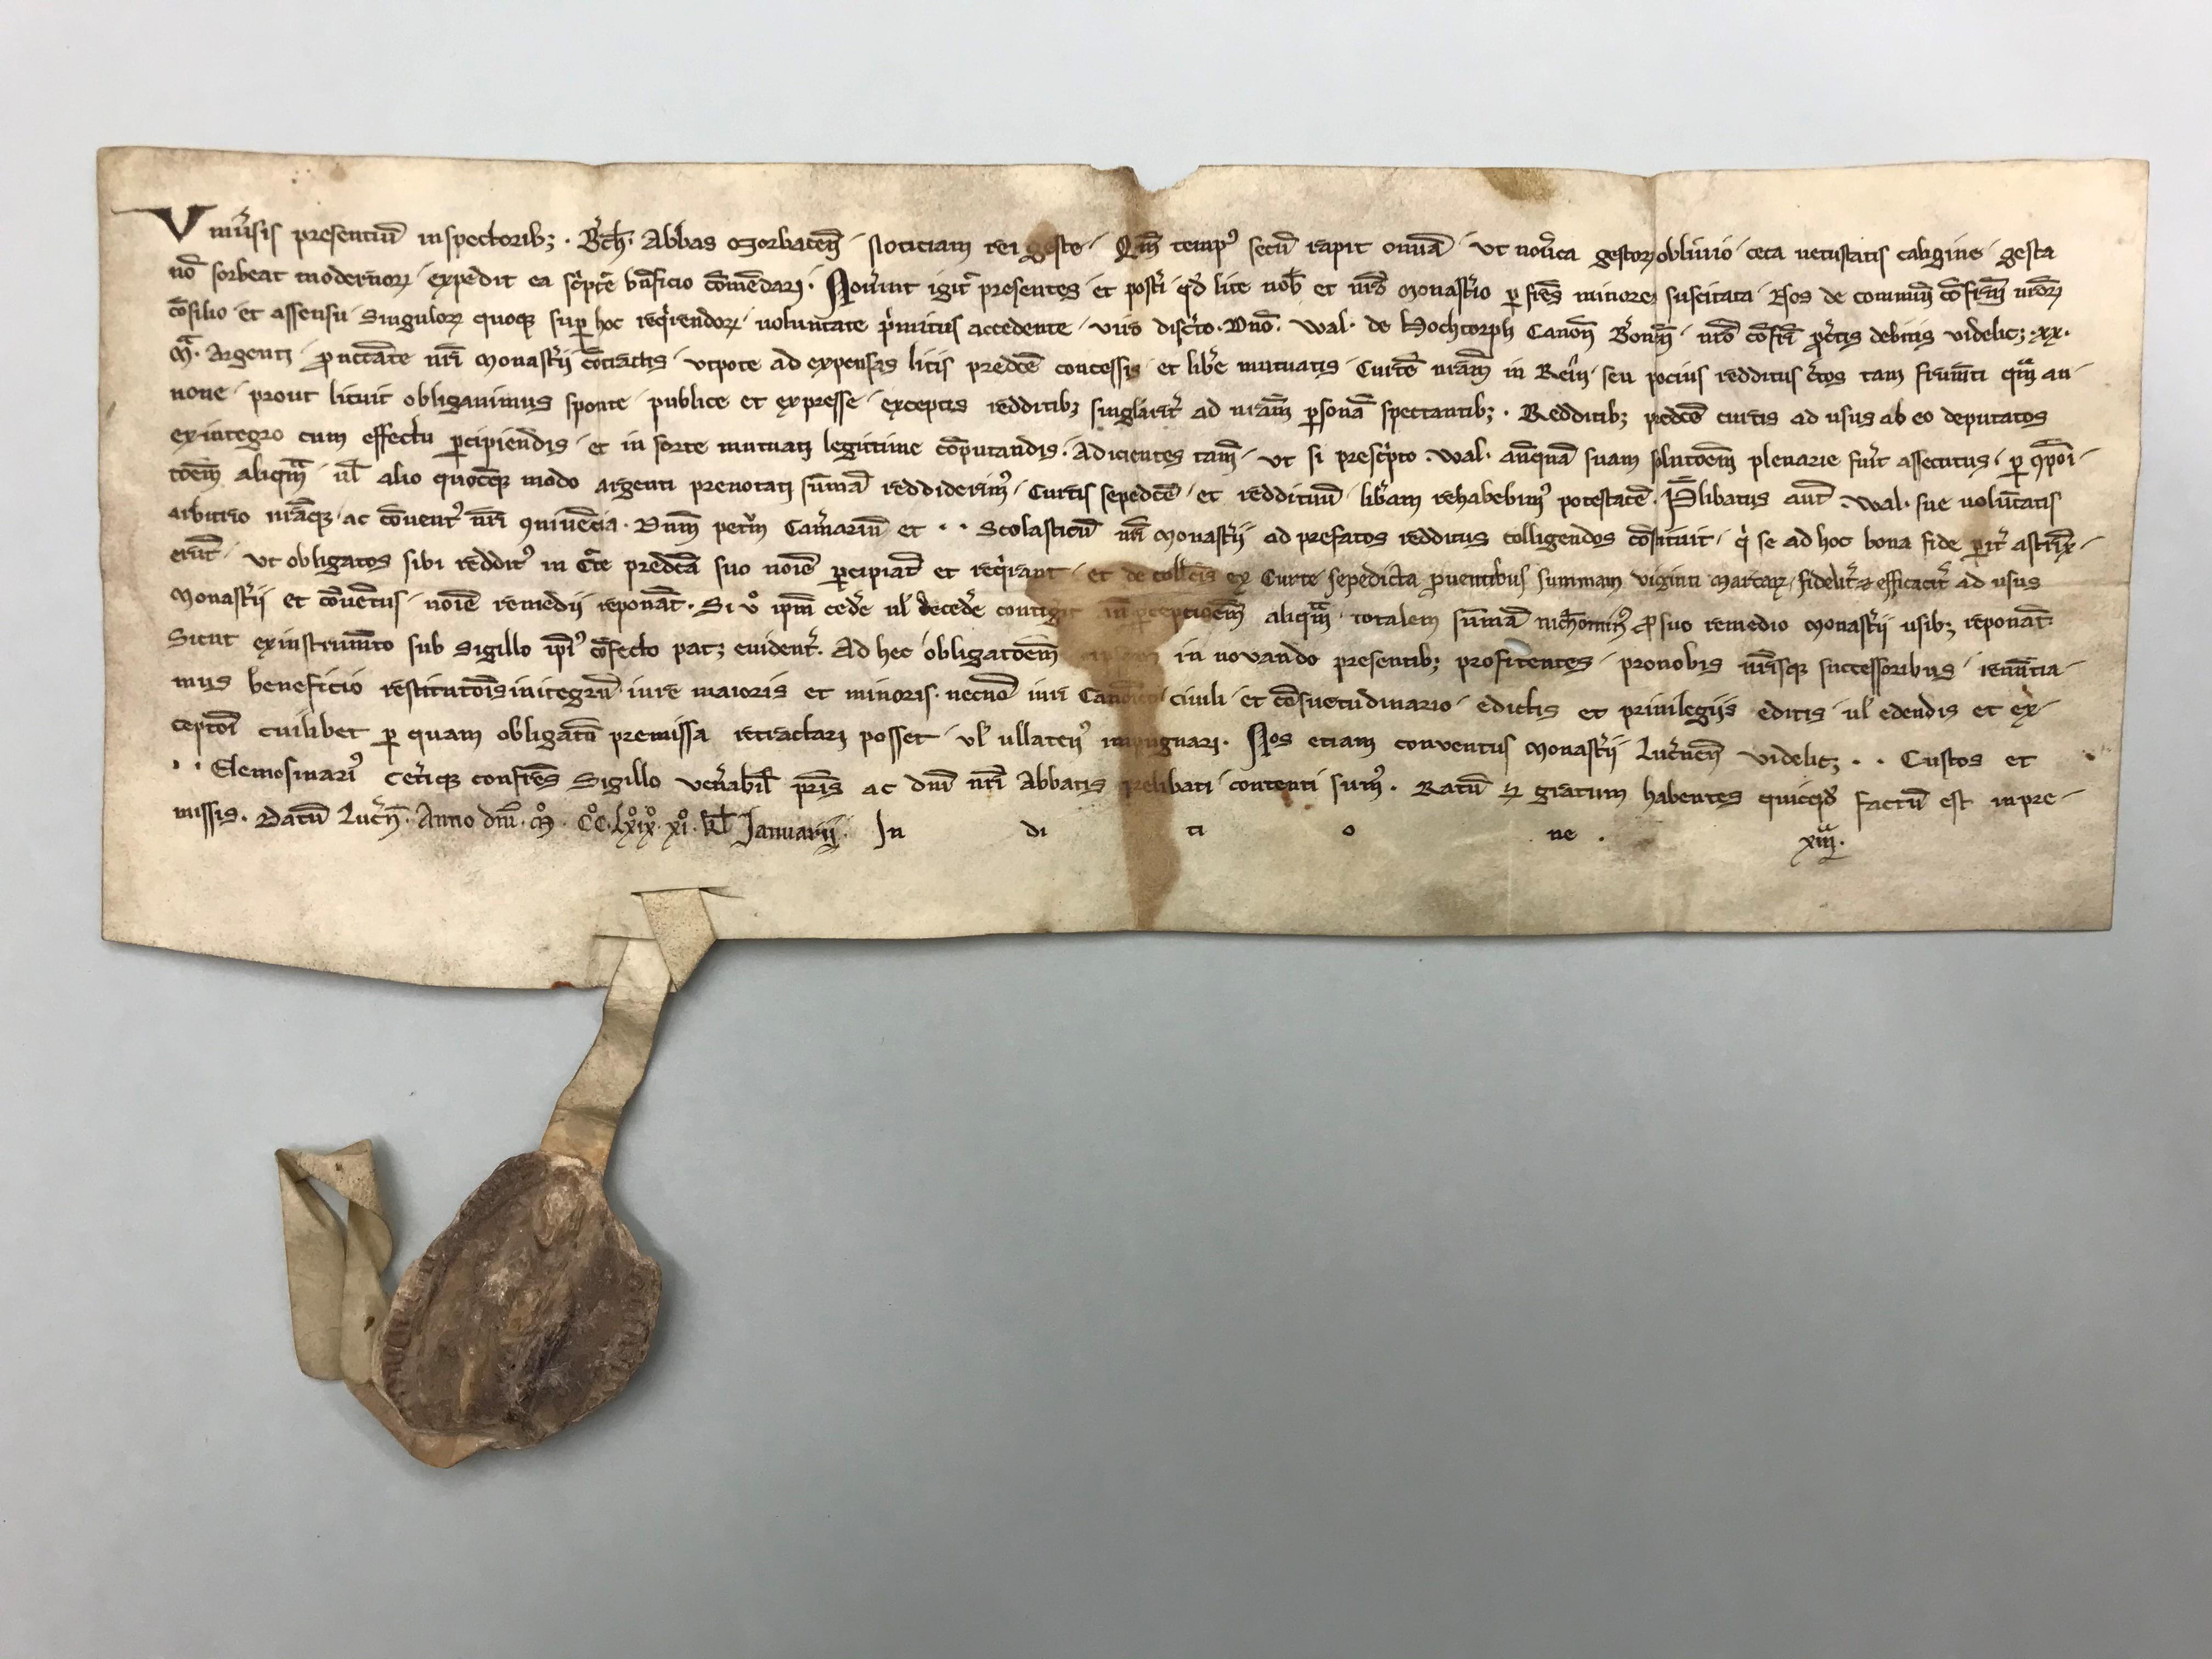 Vniũsis presentiũ inspectorib; · B̓cħ · Abbas Morbaceñ · Noticiam rei geste · Qm̃ temp⁹ secũ rapit omīa · Ut nou̓ca gestoꝝ obliuio · ceca uetustatis caligine · gesta
nō sorbeat modernoꝝ · expedit ea sc̓ptr̃e bñficio cōmēdari · Nou̓int igit̃ presentes et post̓i qđ lite noƀ et nr̃o Monast̓io ꝑ fr̃es minores suscitata · Nos de commun̄ cōfrm̄ nr̃oꝝ
cōsilio et assensu · Singuloꝝ quoqꝫ suꝑ hoc req̓rendoꝝ · uoluntate p̓mitus accedente · viro disc̓to · Dn̄o · Wal · de Hochtorph Canoñ B̓oneñ · nr̃o cōfr̃i ꝑ c̓tis debitis videlic; · xx ·
M̃ · Argenti · ꝓ uc̃tate nr̃i Monast̓ii cōtractis · vtpote ad expensas litis predc̃e concessis · et lib̓e mutuatis · Curtē nr̃am in Rein̄ · seu pocius redditus c̓tos tam frumti qm̃ an-
none · prout licuit obligauimus sponte · publice et expresse · exceptis redditib; singlarit̓ ad nr̃am ꝑsonā spectantib; · Redditib; predc̃e curtis ad usus ab eo deputatos
ex integro cum effectu ꝑcipiendis · et in sorte mutuati legittime cōputandis · Adicientes tam̄ · ut si presc̓pto · Wal · anq̃uā suam solutōem plenarie fu̓it assecutus · ꝑ ꝯpoi-
tōem aliqm̃ · ul̄ alio quocūqꝫ modo argenti prenotati sūmā reddiderim⁹ · Curtis sepedc̃e · et reddituū · lib̓am rehabebim⁹ potestatē · P̄libatus aut̄ · Wal · sue uolūtatis
arbitrio nr̃aqꝫ · ac cōuent⁹ nr̃i ꝯniuēcia · Dnm̄ petrm̄ Cam̓ariū et · · Scolasticū nr̃i Monast̓ii ad prefatos redditus colligendos cōstituit · q̓ se ad hoc bona fide ꝑit̓ astrix-
erūt · ut obligatos sibi reddit⁹ in C̓te predc̃a suo noīe ꝑcipiāt et req̓rant · et de coll̃cis ex Curte sepedicta ꝓuentibus summam viginti marcaꝝ · fidelit̓ ⁊ efficacit̓ ad usus
Monast̓ii et cōuētus · noīe remedii reponāt · Si u̓o ipm̄ ced̓e ul̄ deced̓e contig̓it an̄ ꝑceptiōem aliqm̃ · totalem sūmā nich̄omin⁹ ꝓ suo remedio Monast̓ii usib; reponāt
Sicut ex instrumto sub Sigillo ip̄i⁹ cōfecto pat; euident̓ · Ad hec obligatōem in nouando presentib; profitentes · pro nobis nr̃isqꝫ successoribus · renūtia-
mus beneficio restitutōis in integrū · iure maioris et minoris · necnō iuri Canōico ciuili · et cōsuetudinario · edictis et priuilegiis editis · ul̄ edendis et ex-
ceptōi cuilibet ꝑ quam obligatū premissa retractari posset · ul̄ ullaten⁹ impugnari · Nos etiam conventus Monast̓ii Luc̓neñ videlic; · · Custos et
· · Elemosinari⁹ Cet̓iqꝫ confr̃es Sigillo ven̓abil̄ pr̃is ac dn̄i nr̃i Abbatis prelibati · contenti sum⁹ · Ratū ⁊ gratum habentes quicqđ factū est in pre-
missis · Datū Luc̓ñ · Anno dn̄i · M̊ · CC̊ · Lx̊ix̊ · xi̊ · kl̄ Januarii · In di cti o ne · xiii ·